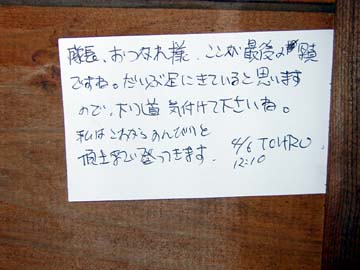 隊長、おつかれ様、ここが最後の関
ですね。だいぶ足にきていると思います
ので、下り道 気付けて下さいね。
私はこれからのんびりと
頂上まで登ってきます。
4/6 TOHRU
12:10